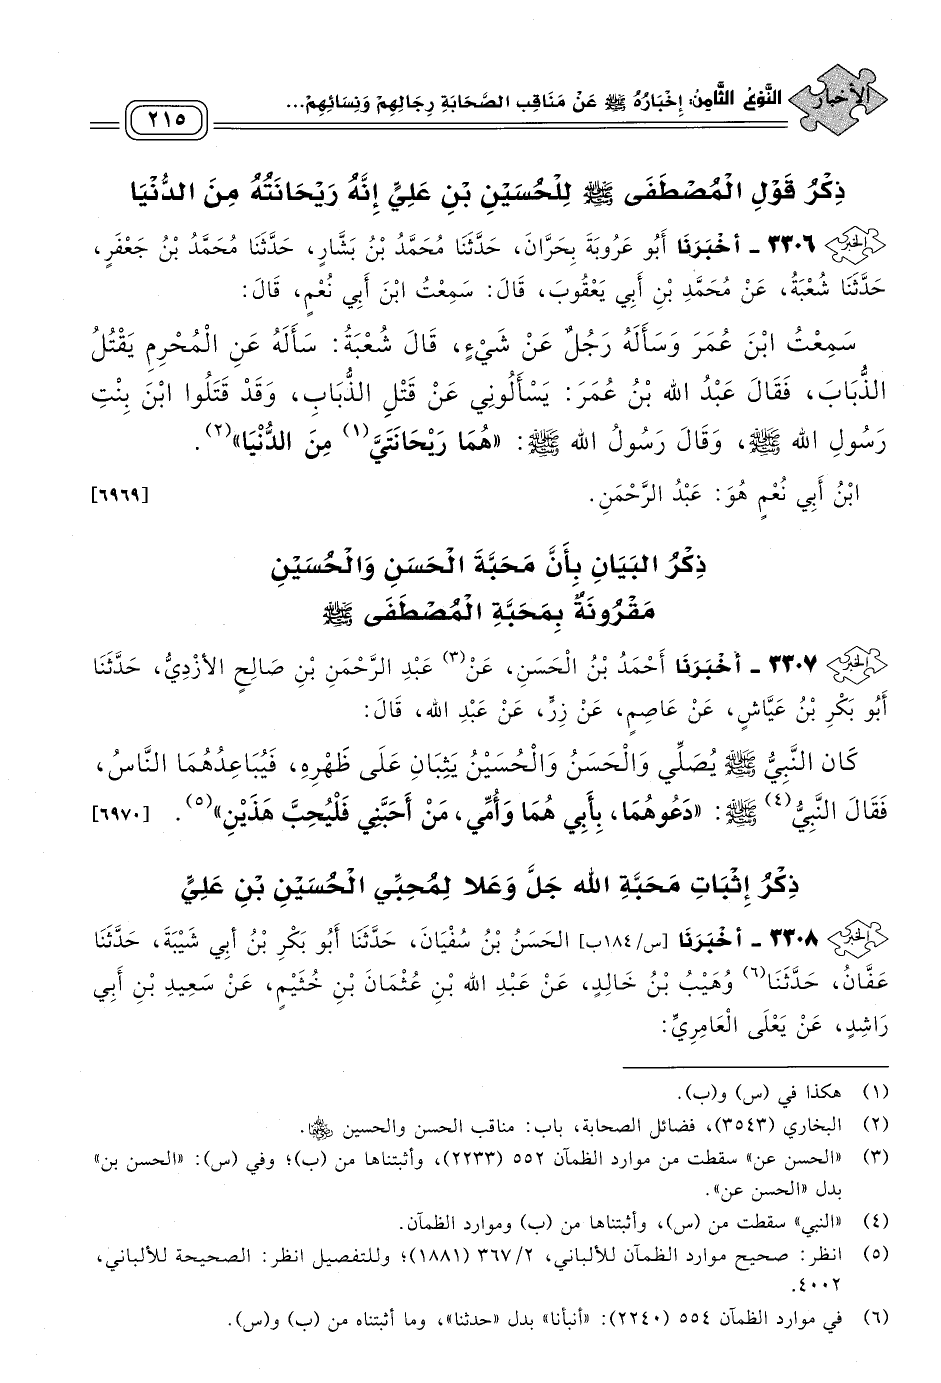 الأخبار
النَّوْعُ الثَّامِنُ: إِخْبَارُهُ ﷺ عَنْ مَنَاقِبِ الصَّحَابَةِ رِجَالِهِمْ وَنِسَائِهِمْ...
٢١٥
ذِكْرُ قَوْلِ الْمُصْطَفَى ﷺ لِلْحُسَيْنِ بْنِ عَلِيٍّ إِنَّهُ رَيْحَانَتُهُ مِنَ الدُّنْيَا
٣٣٠٦ - أَخْبَرَنَا أَبُو عَرُوبَةَ بِحَرَّانَ، حَدَّثَنَا مُحَمَّدُ بْنُ بَشَّارٍ، حَدَّثَنَا مُحَمَّدُ بْنُ جَعْفَرٍ،
حَدَّثَنَا شُعْبَةُ، عَنْ مُحَمَّدِ بْنِ أَبِي يَعْقُوبَ، قَالَ: سَمِعْتُ ابْنَ أَبِي نُعْمٍ، قَالَ:
سَمِعْتُ ابْنَ عُمَرَ وَسَأَلَهُ رَجُلٌ عَنْ شَيْءٍ، قَالَ شُعْبَةُ: سَأَلَهُ عَنِ الْمُحْرِمِ يَقْتُلُ
الذُّبَابَ، فَقَالَ عَبْدُ الله بْنُ عُمَرَ: يَسْأَلُونِي عَنْ قَتْلِ الذُّبَابِ، وَقَدْ قَتَلُوا ابْنَ بِنْتِ
رَسُولِ الله ﷺ، وَقَالَ رَسُولُ الله ﷺ: «هُمَا رَيْحَانَتَيَّ(١) مِنَ الدُّنْيَا»(٢).
ابْنُ أَبِي نُعْمٍ هُوَ: عَبْدُ الرَّحْمَنِ. [٦٩٦٩]
ذِكْرُ البَيَانِ بِأَنَّ مَحَبَّةَ الْحَسَنِ وَالْحُسَيْنِ
مَقْرُونَةٌ بِمَحَبَّةِ الْمُصْطَفَى ﷺ
٣٣٠٧ - أَخْبَرَنَا أَحْمَدُ بْنُ الْحَسَنِ، عَنْ(٣) عَبْدِ الرَّحْمَنِ بْنِ صَالِحٍ الأَزْدِيُّ، حَدَّثَنَا
أَبُو بَكْرِ بْنُ عَيَّاشٍ، عَنْ عَاصِمٍ، عَنْ زِرٍّ، عَنْ عَبْدِ الله، قَالَ:
كَانَ النَّبِيُّ ﷺ يُصَلِّي وَالْحَسَنُ وَالْحُسَيْنُ يَثِبَانِ عَلَى ظَهْرِهِ، فَيُبَاعِدُهُمَا النَّاسُ،
فَقَالَ النَّبِيُّ(٤) ﷺ: «دَعُوهُمَا، بِأَبِي هُمَا وَأُمِّي، مَنْ أَحَبَّنِي فَلْيُحِبَّ هَذَيْنِ»(٥). [٦٩٧٠]
ذِكْرُ إِثْبَاتِ مَحَبَّةِ الله جَلَّ وَعَلا لِمُحِبِّي الْحُسَيْنِ بْنِ عَلِيٍّ
٣٣٠٨ - أَخْبَرَنَا [س/١٨٤ب] الحَسَنُ بْنُ سُفْيَانَ، حَدَّثَنَا أَبُو بَكْرِ بْنُ أَبِي شَيْبَةَ، حَدَّثَنَا
عَفَّانُ، حَدَّثَنَا(٦) وُهَيْبُ بْنُ خَالِدٍ، عَنْ عَبْدِ الله بْنِ عُثْمَانَ بْنِ خُثَيْمٍ، عَنْ سَعِيدِ بْنِ أَبِي
رَاشِدٍ، عَنْ يَعْلَى الْعَامِرِيِّ:
(١) هكذا في (س) و(ب).
(٢) البخاري (٣٥٤٣)، فضائل الصحابة، باب: مناقب الحسن والحسين.
(٣) «الحسن عن» سقطت من موارد الظمآن ٥٥٢ (٢٢٣٣)، وأثبتناها من (ب)؛ وفي (س): «الحسن بن»
بدل «الحسن عن».
(٤) «النبي» سقطت من (س)، وأثبتناها من (ب) وموارد الظمآن.
(٥) انظر: صحيح موارد الظمآن للألباني، ٣٦٧/٢ (١٨٨١)؛ وللتفصيل انظر: الصحيحة للألباني،
٤٠٠٢.
(٦) في موارد الظمآن ٥٥٤ (٢٢٤٠): «أنبأنا» بدل «حدثنا»، وما أثبتناه من (ب) و(س).